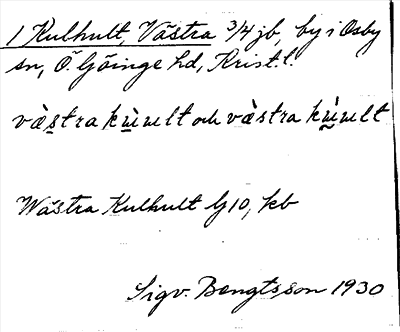 1 Kulhult, Västra 3/4 jb, by i Osby
sn, Ö. Göinge hd, Krist. l.
vὲstra kὺnult och vὲstra kὺnult
Wästra Kulhult 1910, kb
Sigv. Bengtsson 1930